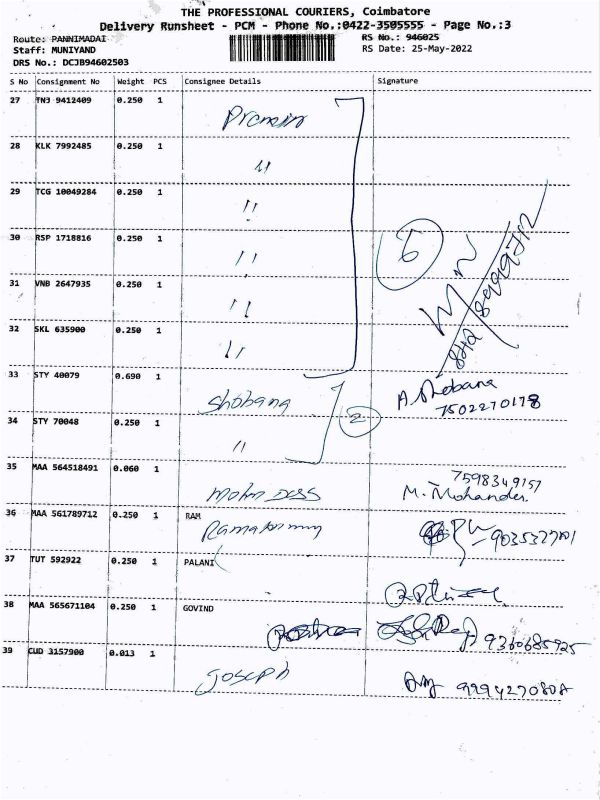 THE PROFESSIONAL COURIERS, Coimbatore
Delivery Runsheet - PCM - Phone No.:0422-3505555 - Page No.:3
Route: PANNIMADAI
RS No.: 946025
Staff: MUNIYAND
RS Date: 25-May-2022
DRS No.: DCJB94602503
S No Consignment No Weight PCS Consignee Details Signature
27 TNJ 9412409 0.250 1
28 KLK 7992485 0.250 1 "
29 TCG 10049284 0.250 1 "
30 RSP 1718816 0.250 1 "
6
31 VNB 2647935 0.250 1 "
32 SKL 635900 0.250 1 "
33 STY 40079 0.690 1 Shobana A. Shobana
7502270178
34 STY 70048 0.250 1 " 2
35 MAA 564518491 0.060 1 7598349157
M. Mohander
36 MAA 561789712 0.250 1 RAM
9035327701
37 TUT 592922 0.250 1 PALANI
38 MAA 565671104 0.250 1 GOVIND
9360685925
39 CUD 3157900 0.013 1 Joseph 9994270808